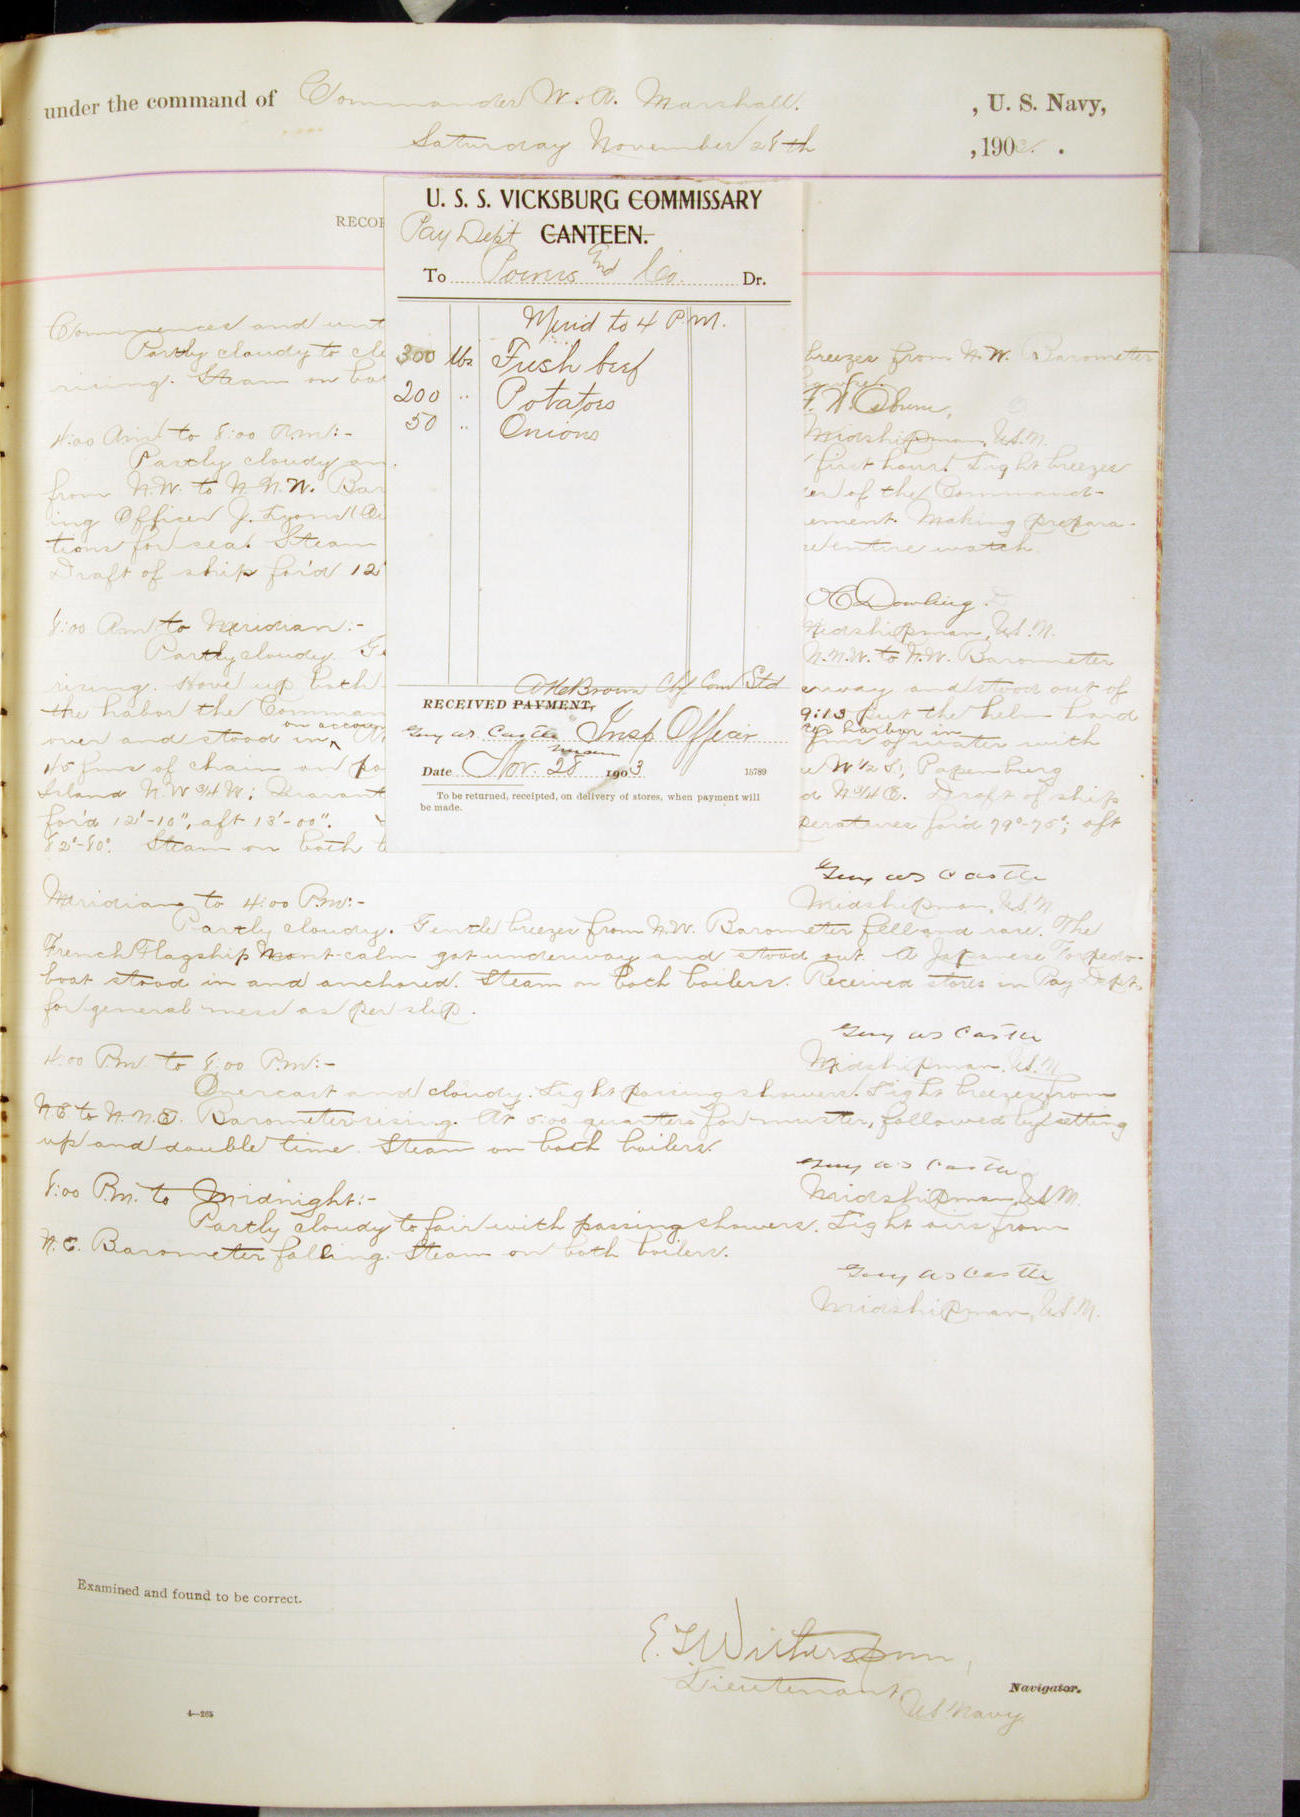 under the command of Commander W. A. Marshall. , U. S. Navy,
Saturday November 28th , 1903 .
RECO
U. S. S. VICKSBURG COMMISSARY
Pay Dept CANTEEN.
To Powers and Co. Dr.
Merid to 4 P.M.
300 lbs. Fresh beef
200 " Potatoes
50 " Onions
Brown Chf Com Std
RECEIVED PAYMENT,
Guy W S Castle Insp Officer
Date Nov. 28 1903 15789
To be returned, receipted, on delivery of stores, when payment will
be made.
Commences and unt
Partly cloudy to cle breezes from N.W. Barometer
rising. Steam on boi
F. H. Osburn,
4:00 Am to 8:00 A.m:- Midshipman, U.S.N.
Partly cloudy an first hour. Light breezes
from N.W. to N.N.W. Bar er of the Command-
ing Officer J. Lyons ement. Making prepara-
tions for sea. Steam entire watch
Draft of ship for'd 12'
Dowling.
8:00 Am to Meridian:- Midshipman, U.S.N.
Partly cloudy. Ge N.N.W. to N.W. Barometer
rising. Hove up both erway and stood out of
the harbor the Comman 9:13 put the helm hard
on accou harbor in
over and stood in, fms of water with
45 fms of chain on po W 1/2 S; Papenburg
Island N.W 3/4 W; Quarant d N 3/4 E. Draft of ship
for'd 12'-10", aft 13'-00". peratures for'd 79°-75°; aft
82°-80°. Steam on both b
Guy W S Castle
Meridian to 4:00 P.m:- Midshipman, U.S.N.
Partly cloudy. Gentle breezes from N.W. Barometer fell and rose. The
French Flagship Mont-calm got underway and stood out. A Japanese Torpedo-
boat stood in and anchored. Steam on both boilers. Received stores in Pay Dept.
for general mess as per slip.
Guy W S Castle
4:00 P.m. to 8:00 P.m:- Midshipman, U.S.N.
Overcast and cloudy. Light passing showers. Light breezes from
N.E to N.N.E. Barometer rising. At 5:00 quarters for muster, followed by setting
up and double time. Steam on both boilers.
Guy W S Castle
8:00 P.m. to Midnight:- Midshipman, U.S.N.
Partly cloudy to fair with passing showers. Light airs from
N.E. Barometer falling. Steam on both boilers.
Guy W S Castle
Midshipman, U.S.N.
Examined and found to be correct.
E. T. Witherspoon,
Lieutenant U.S. Navy Navigator.
4—265